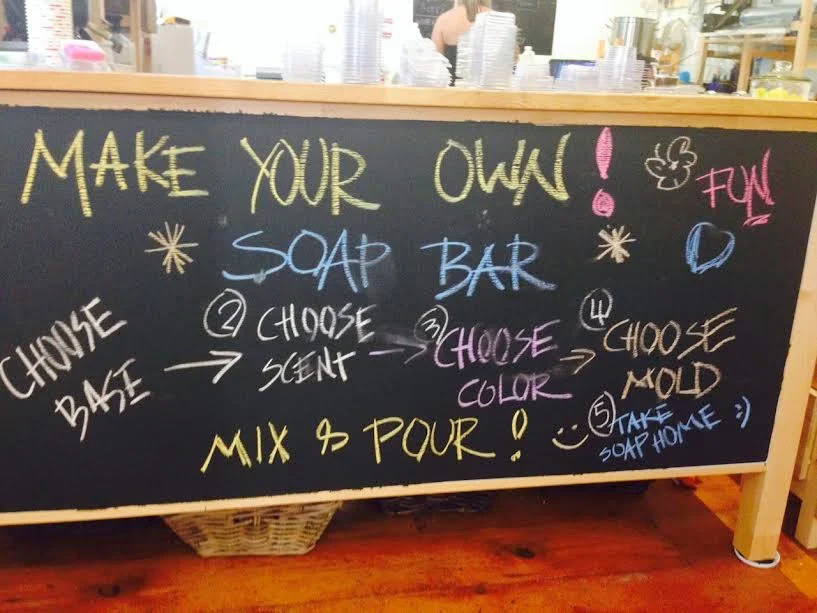 MAKE YOUR OWN! FUN
SOAP BAR
CHOOSE
BASE
② CHOOSE
SCENT
③ CHOOSE
COLOR
④ CHOOSE
MOLD
MIX & POUR!
⑤ TAKE
SOAP HOME :)